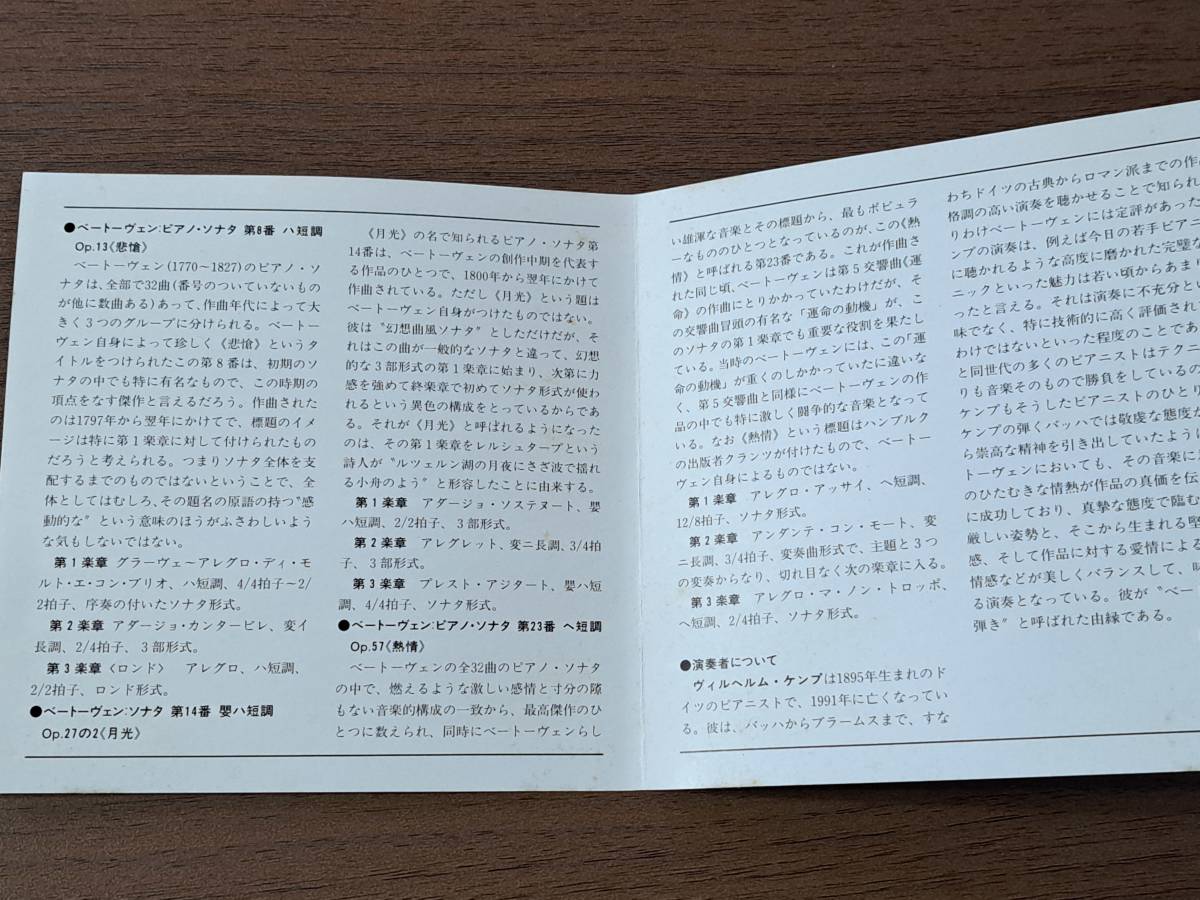 ●ベートーヴェン:ピアノ・ソナタ 第8番 ハ短調
Op.13《悲愴》
ベートーヴェン(1770〜1827)のピアノ・ソ
ナタは、全部で32曲(番号のついていないもの
が他に数曲ある)あって、作曲年代によって大
きく3つのグループに分けられる。ベートー
ヴェン自身によって珍しく《悲愴》というタ
イトルをつけられたこの第8番は、初期のソ
ナタの中でも特に有名なもので、この時期の
頂点をなす傑作と言えるだろう。作曲された
のは1797年から翌年にかけてで、標題のイメ
ージは特に第1楽章に対して付けられたもの
だろうと考えられる。つまりソナタ全体を支
配するまでのものではないということで、全
体としてはむしろ、その題名の原語の持つ〝感
動的な〟という意味のほうがふさわしいよう
な気もしないではない。
第1楽章 グラーヴェ〜アレグロ・ディ・モ
ルト・エ・コン・ブリオ、ハ短調、4/4拍子〜2/
2拍子、序奏の付いたソナタ形式。
第2楽章 アダージョ・カンタービレ、変イ
長調、2/4拍子、3部形式。
第3楽章〈ロンド〉 アレグロ、ハ短調、
2/2拍子、ロンド形式。
●ベートーヴェン:ソナタ 第14番 嬰ハ短調
Op.27の2《月光》
《月光》の名で知られるピアノ・ソナタ第
14番は、ベートーヴェンの創作中期を代表す
る作品のひとつで、1800年から翌年にかけて
作曲されている。ただし《月光》という題は
ベートーヴェン自身がつけたものではない。
彼は〝幻想曲風ソナタ〟としただけだが、そ
れはこの曲が一般的なソナタと違って、幻想
的な3部形式の第1楽章に始まり、次第に力
感を強めて終楽章で初めてソナタ形式が使わ
れるという異色の構成をとっているからであ
る。それが《月光》と呼ばれるようになった
のは、その第1楽章をレルシュタープという
詩人が〝ルツェルン湖の月夜にさざ波で揺れ
る小舟のよう〟と形容したことに由来する。
第1楽章 アダージョ・ソステヌート、嬰
ハ短調、2/2拍子、3部形式。
第2楽章 アレグレット、変ニ長調、3/4拍
子、3部形式。
第3楽章 プレスト・アジタート、嬰ハ短
調、4/4拍子、ソナタ形式。
●ベートーヴェン:ピアノ・ソナタ 第23番 ヘ短調
Op.57《熱情》
ベートーヴェンの全32曲のピアノ・ソナタ
の中で、燃えるような激しい感情と寸分の隙
もない音楽的構成の一致から、最高傑作のひ
とつに数えられ、同時にベートーヴェンらし
い雄渾な音楽とその標題から、最もポピュラ
ーなもののひとつとなっているのが、この《熱
情》と呼ばれる第23番である。これが作曲さ
れた同じ頃、ベートーヴェンは第5交響曲《運
命》の作曲にとりかかっていたわけだが、そ
の交響曲冒頭の有名な「運命の動機」が、こ
のソナタの第1楽章でも重要な役割を果たし
ている。当時のベートーヴェンには、この「運
命の動機」が重くのしかかっていたに違いな
く、第5交響曲と同様にベートーヴェンの作
品の中でも特に激しく闘争的な音楽となって
いる。なお《熱情》という標題はハンブルク
の出版者クランツが付けたもので、ベートー
ヴェン自身によるものではない。
第1楽章 アレグロ・アッサイ、ヘ短調、
12/8拍子、ソナタ形式。
第2楽章 アンダンテ・コン・モート、変
ニ長調、3/4拍子、変奏曲形式で、主題と3つ
の変奏からなり、切れ目なく次の楽章に入る。
第3楽章 アレグロ・マ・ノン・トロッポ、
ヘ短調、2/4拍子、ソナタ形式。
●演奏者について
ヴィルヘルム・ケンプは1895年生まれのド
イツのピアニストで、1991年に亡くなってい
る。彼は、バッハからブラームスまで、すな
わちドイツの古典からロマン派までの作
格調の高い演奏を聴かせることで知られ
りわけベートーヴェンには定評があった
ンプの演奏は、例えば今日の若手ピアニ
に聴かれるような高度に磨かれた完璧な
ニックといった魅力は若い頃からあまり
ったと言える。それは演奏に不充分とい
味でなく、特に技術的に高く評価され
わけではないといった程度のことであ
と同世代の多くのピアニストはテクニ
りも音楽そのもので勝負をしているの
ケンプもそうしたピアニストのひと
ケンプの弾くバッハでは敬虔な態度
ら崇高な精神を引き出していたように
トーヴェンにおいても、その音楽に
のひたむきな情熱が作品の真価を伝
に成功しており、真摯な態度で臨む
厳しい姿勢と、そこから生まれる堅
感、そして作品に対する愛情による
情感などが美しくバランスして、
る演奏となっている。彼が〝ベー
弾き〟と呼ばれた由縁である。